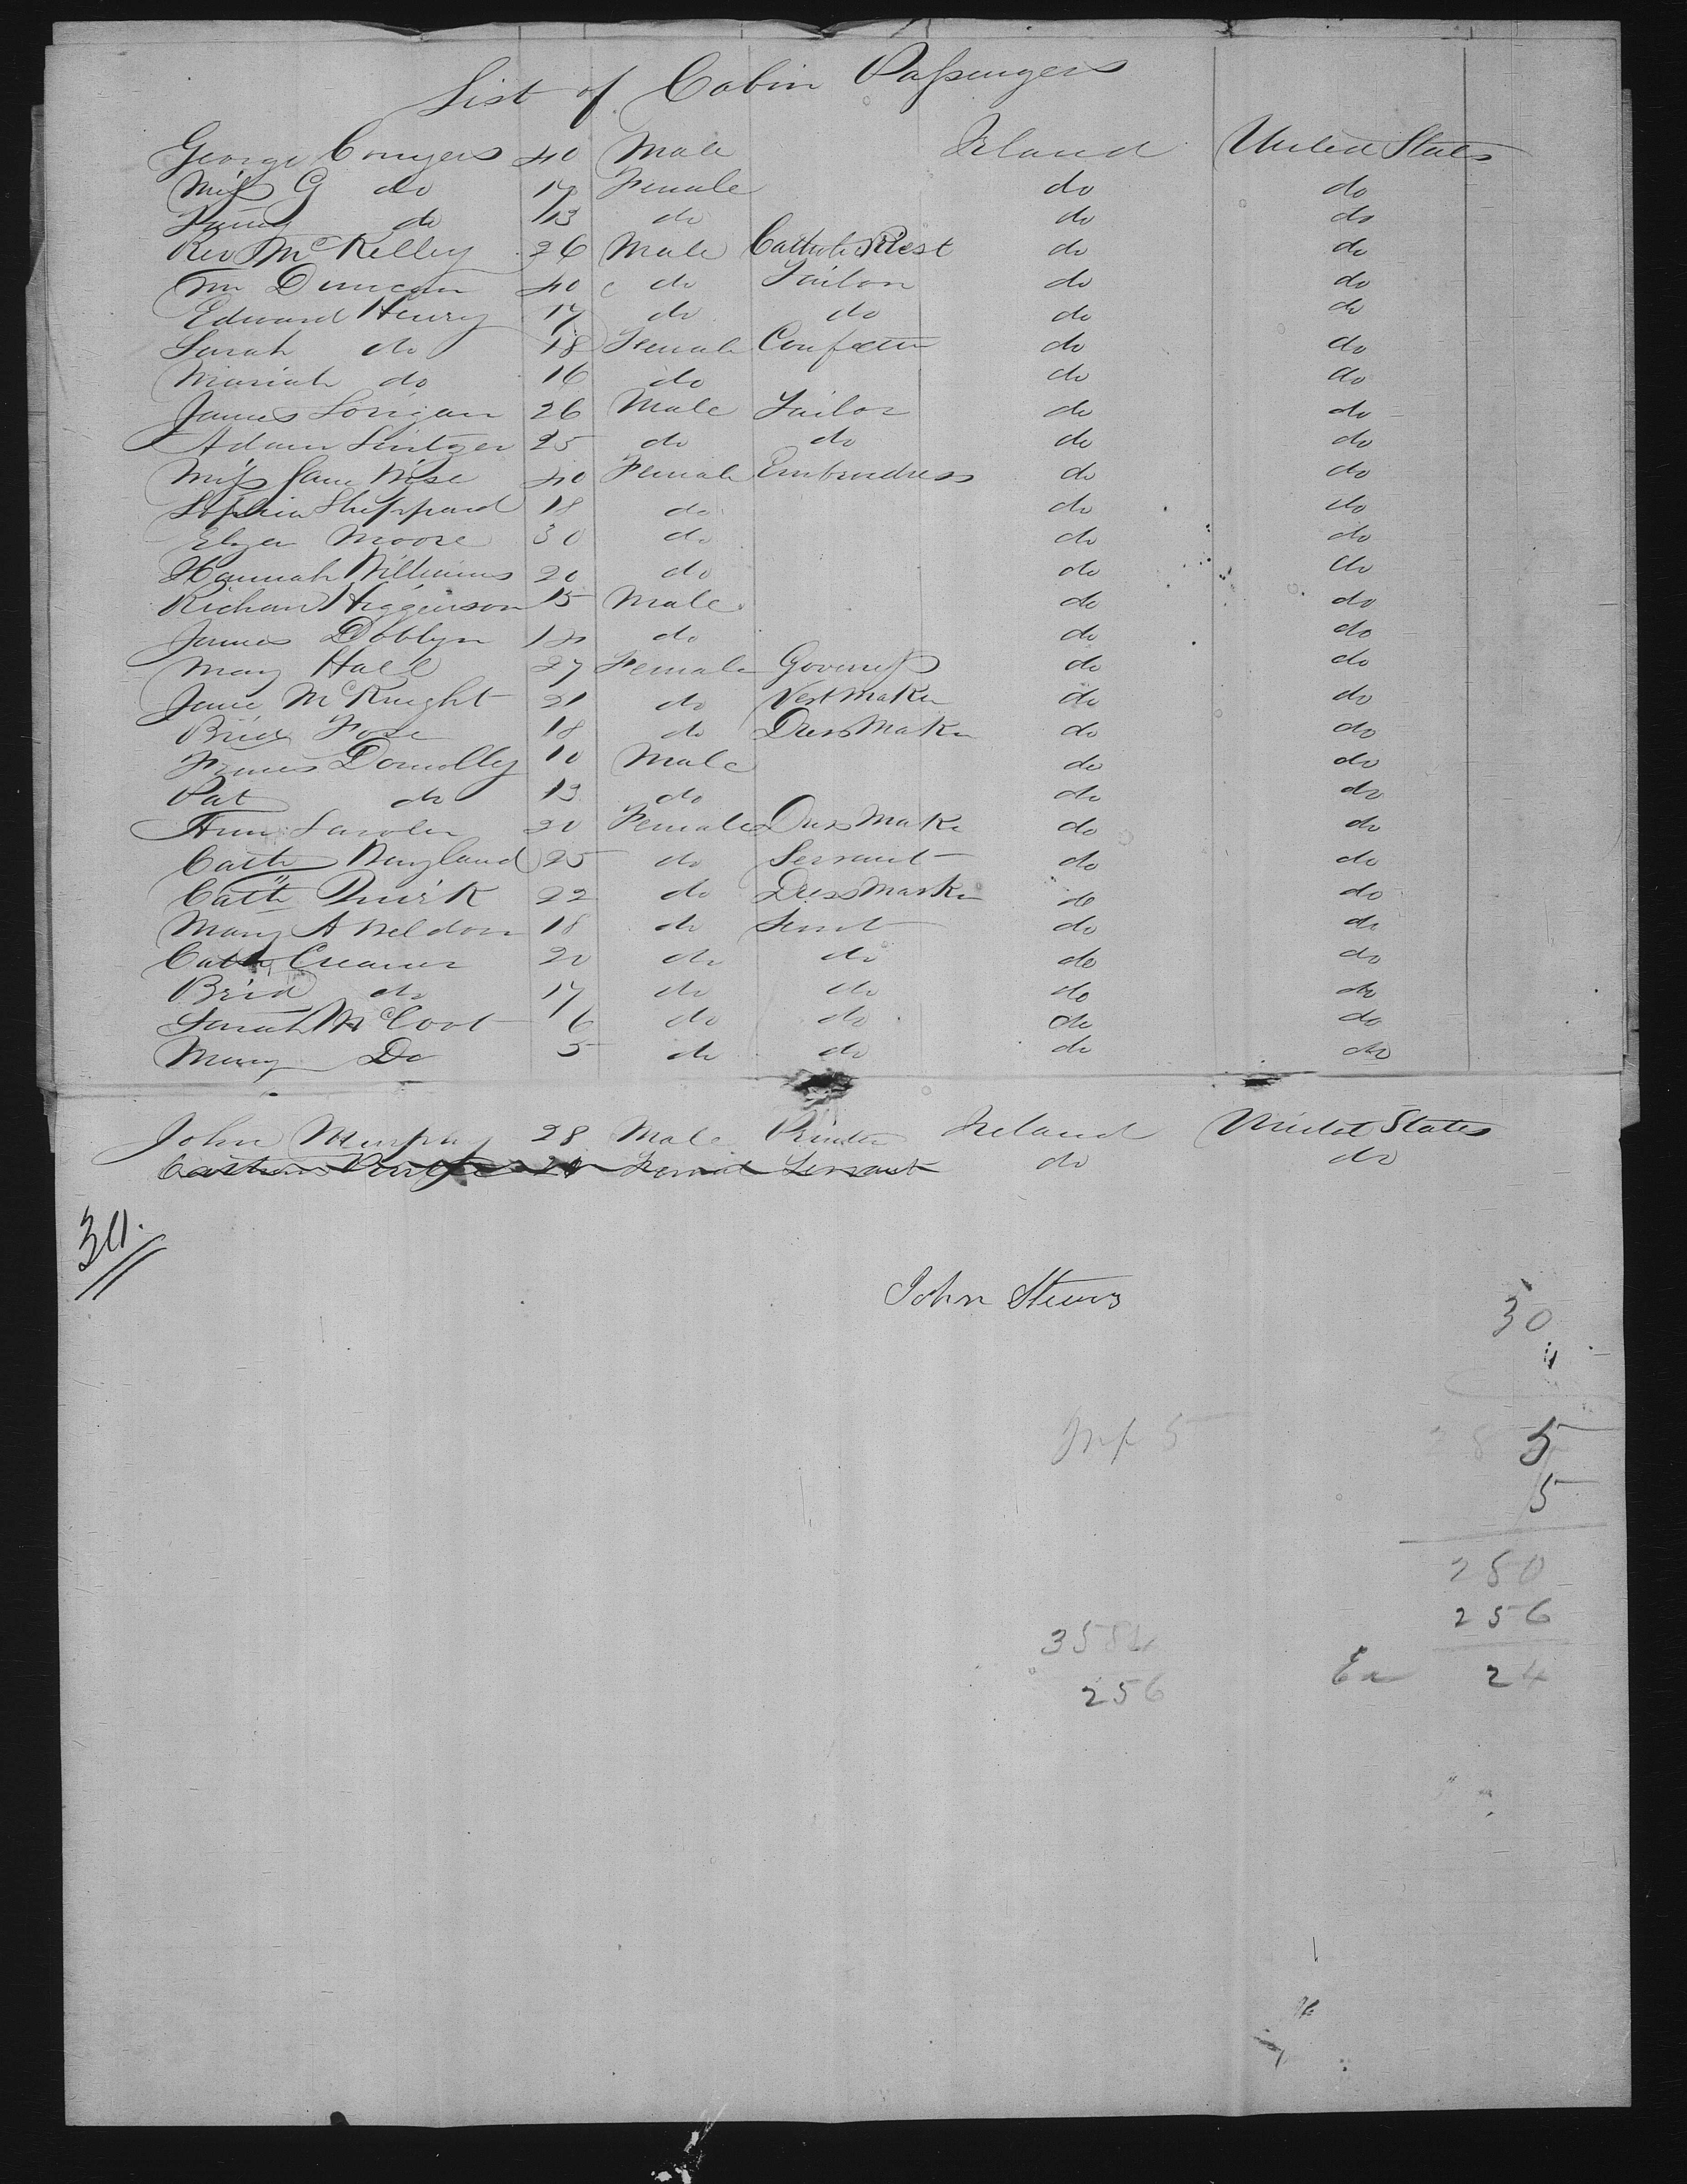 List of Cabin Passengers
George Conyers 40 Male Ireland United States
Miss G do 17 Female do do
Fanny do 13 do do do
Rev Mc Kelley 26 Male Catholic Priest do do
Wm Duncan 40 do Tailor do do
Edward Henry 17 do do do do
Sarah do 18 Female Confectr do do
Mariah do 16 do do do
James Lorigan 26 Male Tailor do do
Adam 25 do do do do
Miss Jane Wise 40 Female Embrodress do do
Sophia Sheppard 18 do do do
Eliza Moore 30 do do do
Hannah Williams 20 do do do
Richard Higgenson 15 Male do do
James Dobbyn 14 do do do
Mary Hall 27 Female Governess do do
Jane McKnight 21 do Vest Maker do do
18 do Dress Maker do do
James Donnolly 10 Male do do
Pat do 13 do do do
Ann Lawler 20 Female Dress Make do do
Cath 25 do Servant do do
Cath Quirk 22 do Dress Marker do do
Mary A Weldon 18 do Servt do do
Cath Creamer 20 do do do do
Brid do 17 do do do do
Sarah McCoot 6 do do do do
Mary Do 5 do do do do
John Murphy 28 Male Printer Ireland United States
Servant do do
30
John
30
Inf 5
5
5
280
256
3584
256
Ex 24